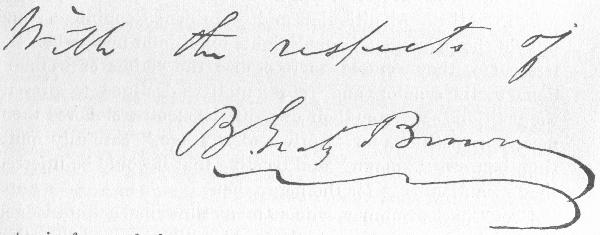 With the respects of
B. Gratz Brown